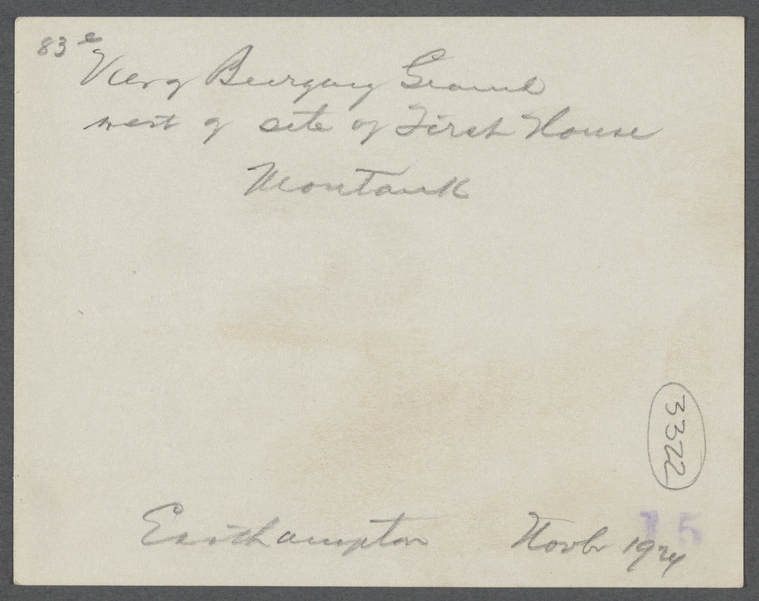 83e
View of Burying Ground
west of site of First House
Montauk
3322
15
Easthampton Novbr 1924